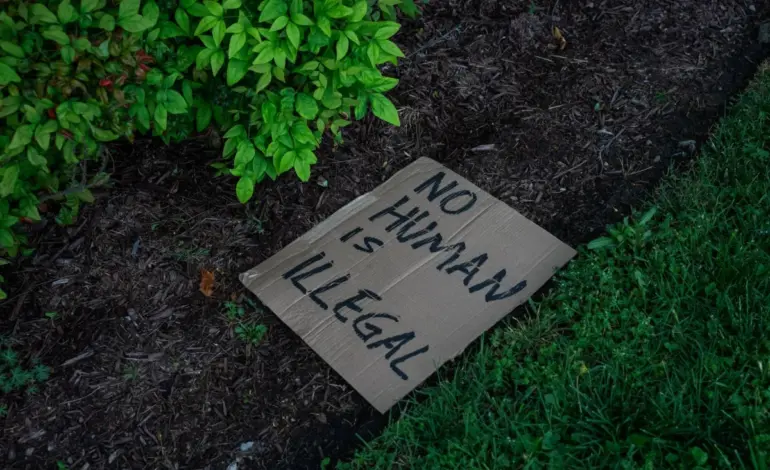 NO
HUMAN
is
ILLEGAL